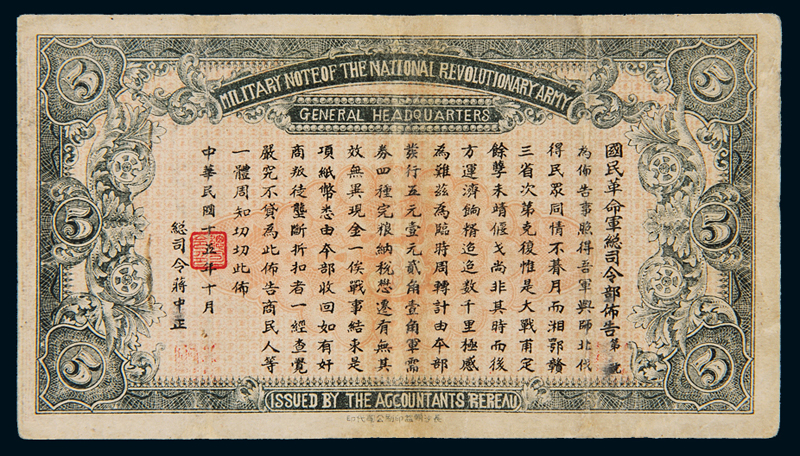 MILITARY NOTE OF THE NATIONAL REVOLUTIONARY ARMY
GENERAL HEADQUARTERS
5
5
國民革命軍總司令部佈告 第 號
為佈告事照得吾軍興師北伐
得民眾同情不暮月而湘鄂贛
三省次第克復惟是大戰甫定
餘孽未靖偃戈尚非其時而後
方運濟餉糈迢迢數千里極感
為難茲為臨時周轉計由本部
發行五元壹元貳角壹角軍需
券四種完粮納稅懋遷有無其
效無異現金一俟戰事結束是
項紙幣悉由本部收回如有奸
商叛徒壟斷折扣者一經查覺
嚴究不貸為此佈告商民人等
一體周知切切此佈
中華民國十五年十月
總司令蔣中正
5
5
5
5
ISSUED BY THE ACCOUNTANTS REREAU